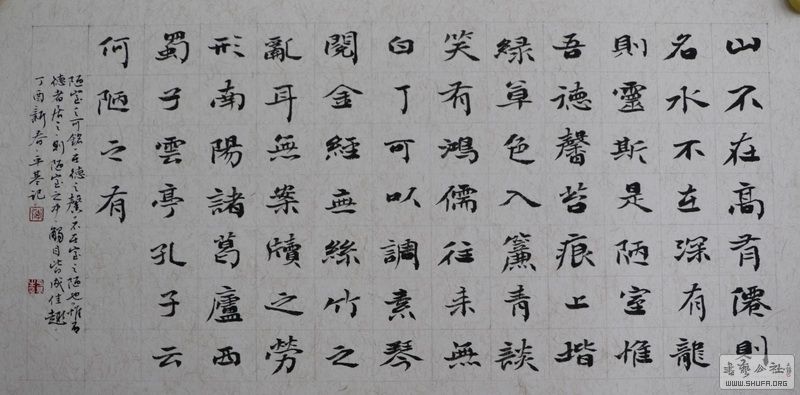 山不在高有僊則
名水不在深有龍
則靈斯是陋室惟
吾德馨苔痕上堦
綠草色入簾青談
笑有鴻儒往来無
白丁可以調素琴
閱金經無絲竹之
亂耳無案牘之勞
形南陽諸葛廬西
蜀子雲亭孔子云
何陋之有
陋室之可銘在德之馨不在室之陋也惟有
德者居之則陋室之中觸目皆成佳趣
丁酉新春平記
書藝公社
WWW.SHUFA.ORG